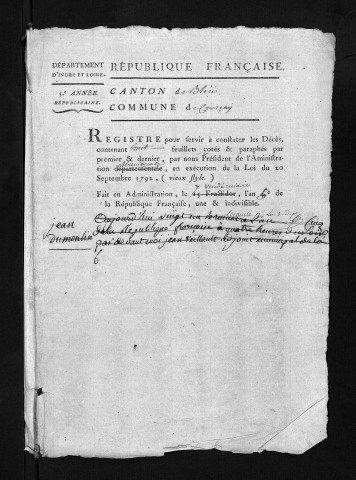 DÉPARTEMENT
D'INDRE ET LOIRE.
RÉPUBLIQUE FRANÇAISE.
5.e ANNÉE
RÉPUBLICAINE.
CANTON de Bléré
COMMUNE de Courçay
REGISTRE pour servir à constater les Décès,
contenant huit feuillets cotés & paraphés par
premier & dernier, par nous Président de l'Aministration
départementale, en exécution de la Loi du 20
Septembre 1792, (vieux style.)
7 vendemiaire
Fait en Administration, le 14 Fructidor, l'an 6e de
la République Française, une & indivisible.
jean
dumoulin
Aujourd'hui vingt un brumaire l'an
de la République française à quatre heures du soir
par devant moi jean adjoint municipal de la